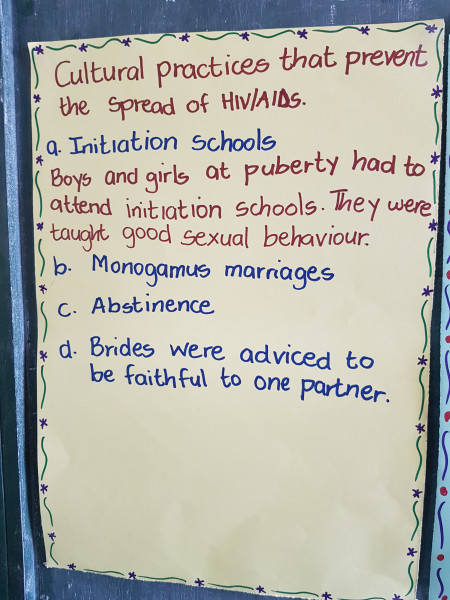 Cultural practices that prevent
the spread of HIV/AIDs.
a. Initiation schools
Boys and girls at puberty had to
attend initiation schools. They were
taught good sexual behaviour.
b. Monogamus marriages
c. Abstinence
d. Brides were adviced to
be faithful to one partner.